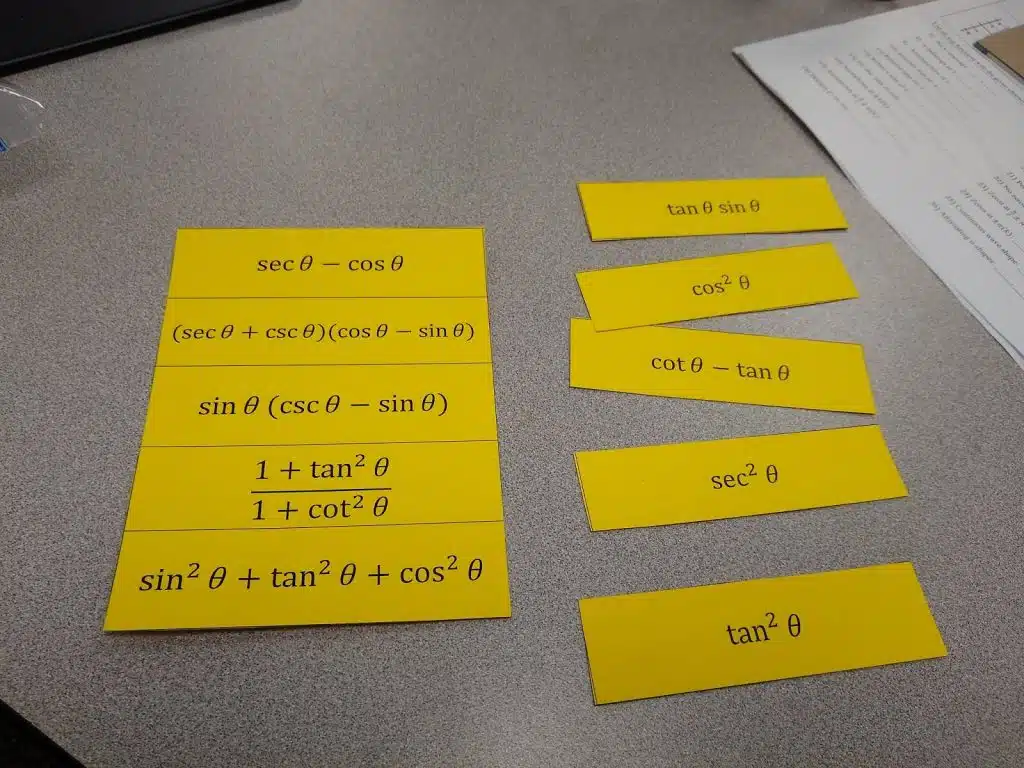 sec θ − cos θ
(sec θ + csc θ)(cos θ − sin θ)
sin θ (csc θ − sin θ)
1 + tan² θ
1 + cot² θ
sin² θ + tan² θ + cos² θ
tan θ sin θ
cos² θ
cot θ − tan θ
sec² θ
tan² θ